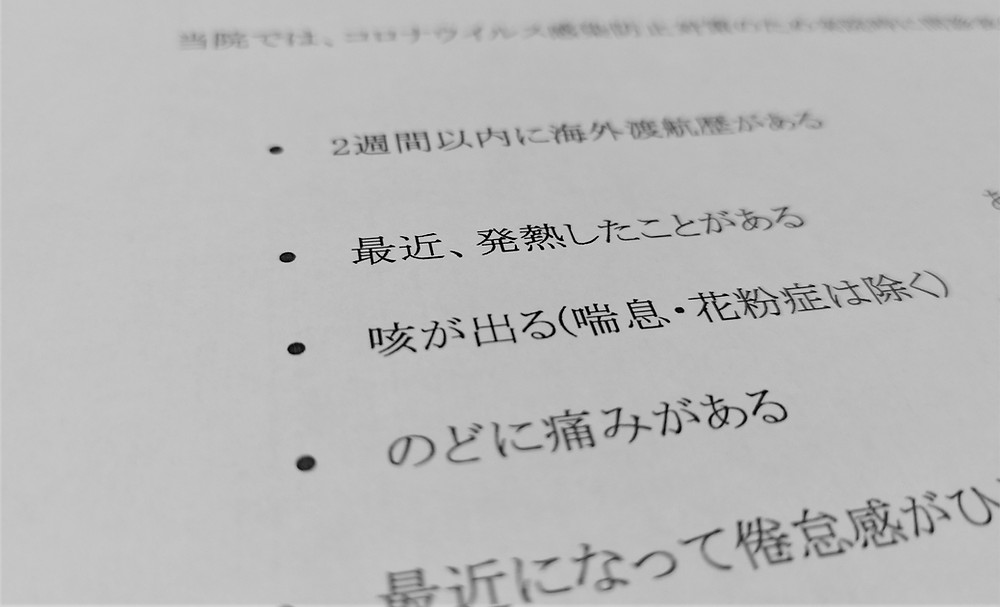 当院では、コロナウイルス感染防止対策のため来院時に
2週間以内に海外渡航歴がある
最近、発熱したことがある
咳が出る(喘息・花粉症は除く)
のどに痛みがある
最近になって倦怠感がひ